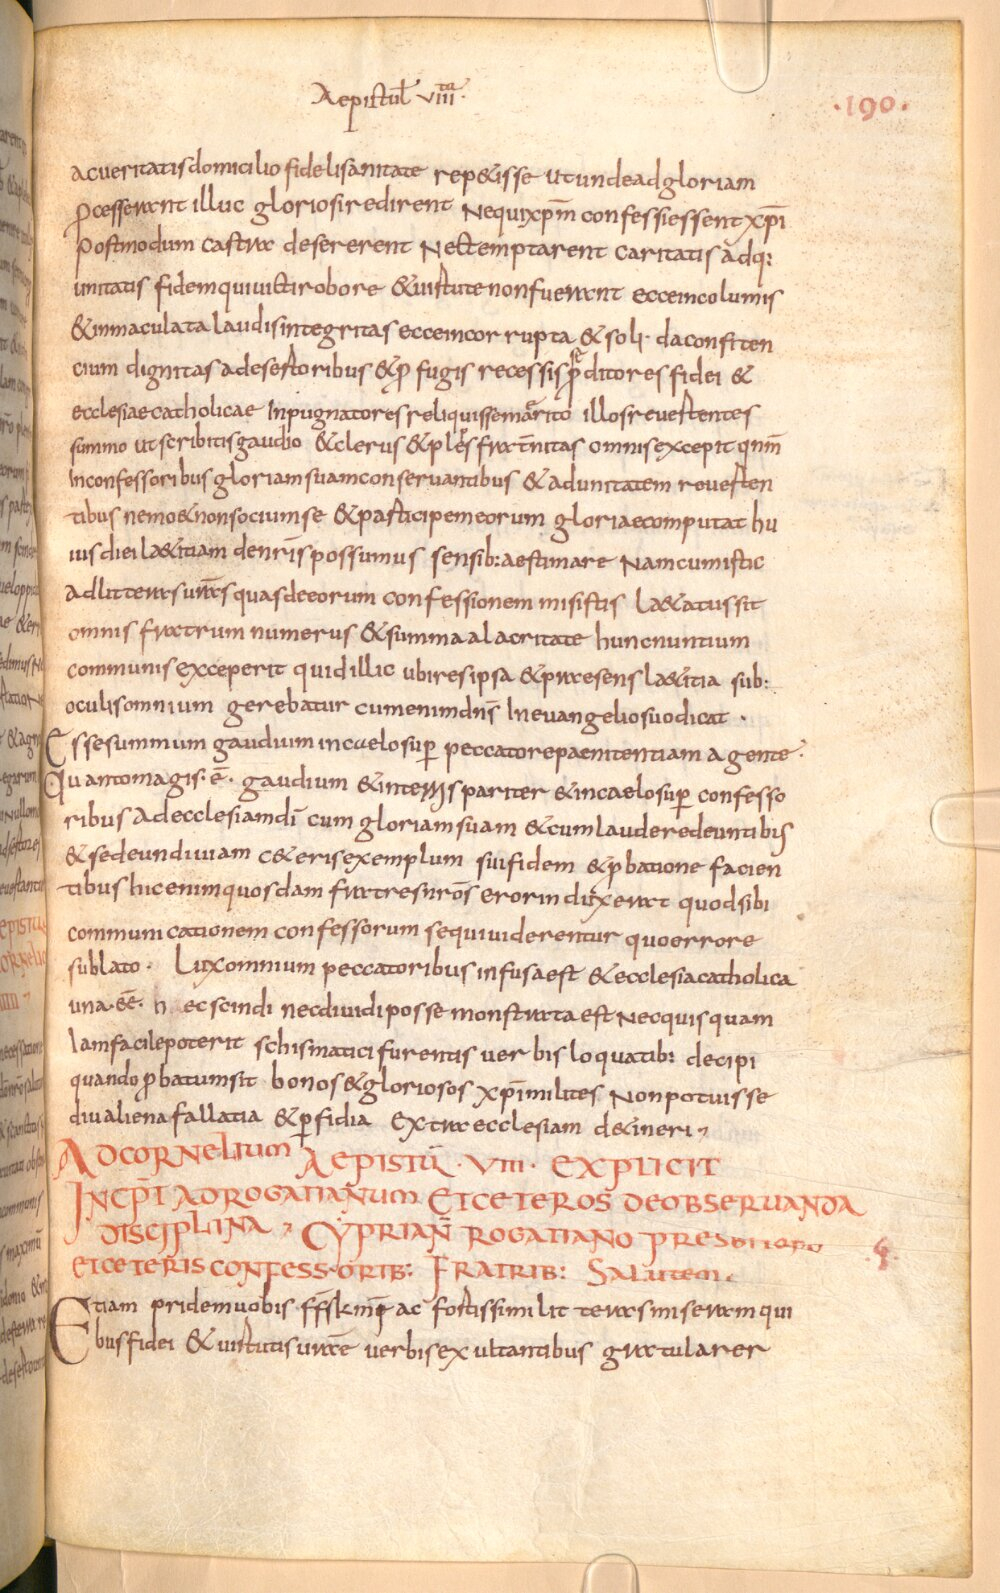 Aepistul VIIIta.
·190·
ac ueritatis domicilio fideli sanitate repetisse ut unde ad gloriam
p̄cesserant illuc gloriosi redirent Ne qui xp̄m confessi essent xp̄i
Postmodum castra desererent Nec temptarent caritatis adq:
unitatis fidem qui uicti robore & uirtute non fuerant ecce incolumis
& inmaculata laudis integritas ecce incorrupta & soli·da confiten
cium dignitas a desertoribus & p̄fugis recessisse p̄ditores fidei &
ecclesiae catholicae Inpugnatores reliquisse marito illos reuertentes
summo ut scribitis gaudio & clerus & plebs frat̄nitas omnis excepit qnm̄
In confessoribus gloriam suam conseruantibus & ad unitatem reuerten
tibus nemo & non socium se & participem eorum gloriae computat hu
ius diei laetitiam de nr̄is possumus sensib: aestimare Nam cum istic
ad litteras uras̄ quas de eorum confessionem misistis laetatus sit
omnis fratrum numerus & summa alacritate hunc nuntium
communis exceperit quid illic ubi res ipsa & praesens laetitia sub:
oculis omnium gerebatur cum enim dn̄s In euangelio suo dicat ·
Esse summum gaudium in caelo sup̄ peccatore paenitentiam agente·
Quanto magis·ē· gaudium & in terris pariter & in caelo sup̄ confesso
ribus ad ecclesiam dī cum gloriam suam & cum laude redeuntibus
& sed eundi uiam ceteris exemplum sui fidem & p̄batione facien
tibus hic enim quosdam fratres nr̄os error induxerat quod sibi
communicationem confessorum sequi uiderentur quo errore
sublato· Lux omnium peccatoribus infusa est & ecclesia catholica
una·eē· nec scindi nec diuidi posse monstrata est Nec quisquam
Iam facile poterit schismatici furentis uerbis loquatib: decipi
quando p̄batum sit bonos & gloriosos xp̄i milites Non potuisse
diu aliena fallatia & p̄fidia extra ecclesiam detineri
AD CORNELIUM AEPISTŪ· VIII· EXPLICIT
INCP̄I AD ROGATIANUM ET CETEROS DE OBSERUANDA
DISCIPLINA CYPRIAN̄ ROGATIANO PRESBITERO
ET CETERIS CONFESSORIB: FRATRIB: SALUTEM.
Etiam pridem uobis ac fortissimi litteras miseram qui
bus fidei & uirtutis urae̅ uerbis exultantibus gratularer